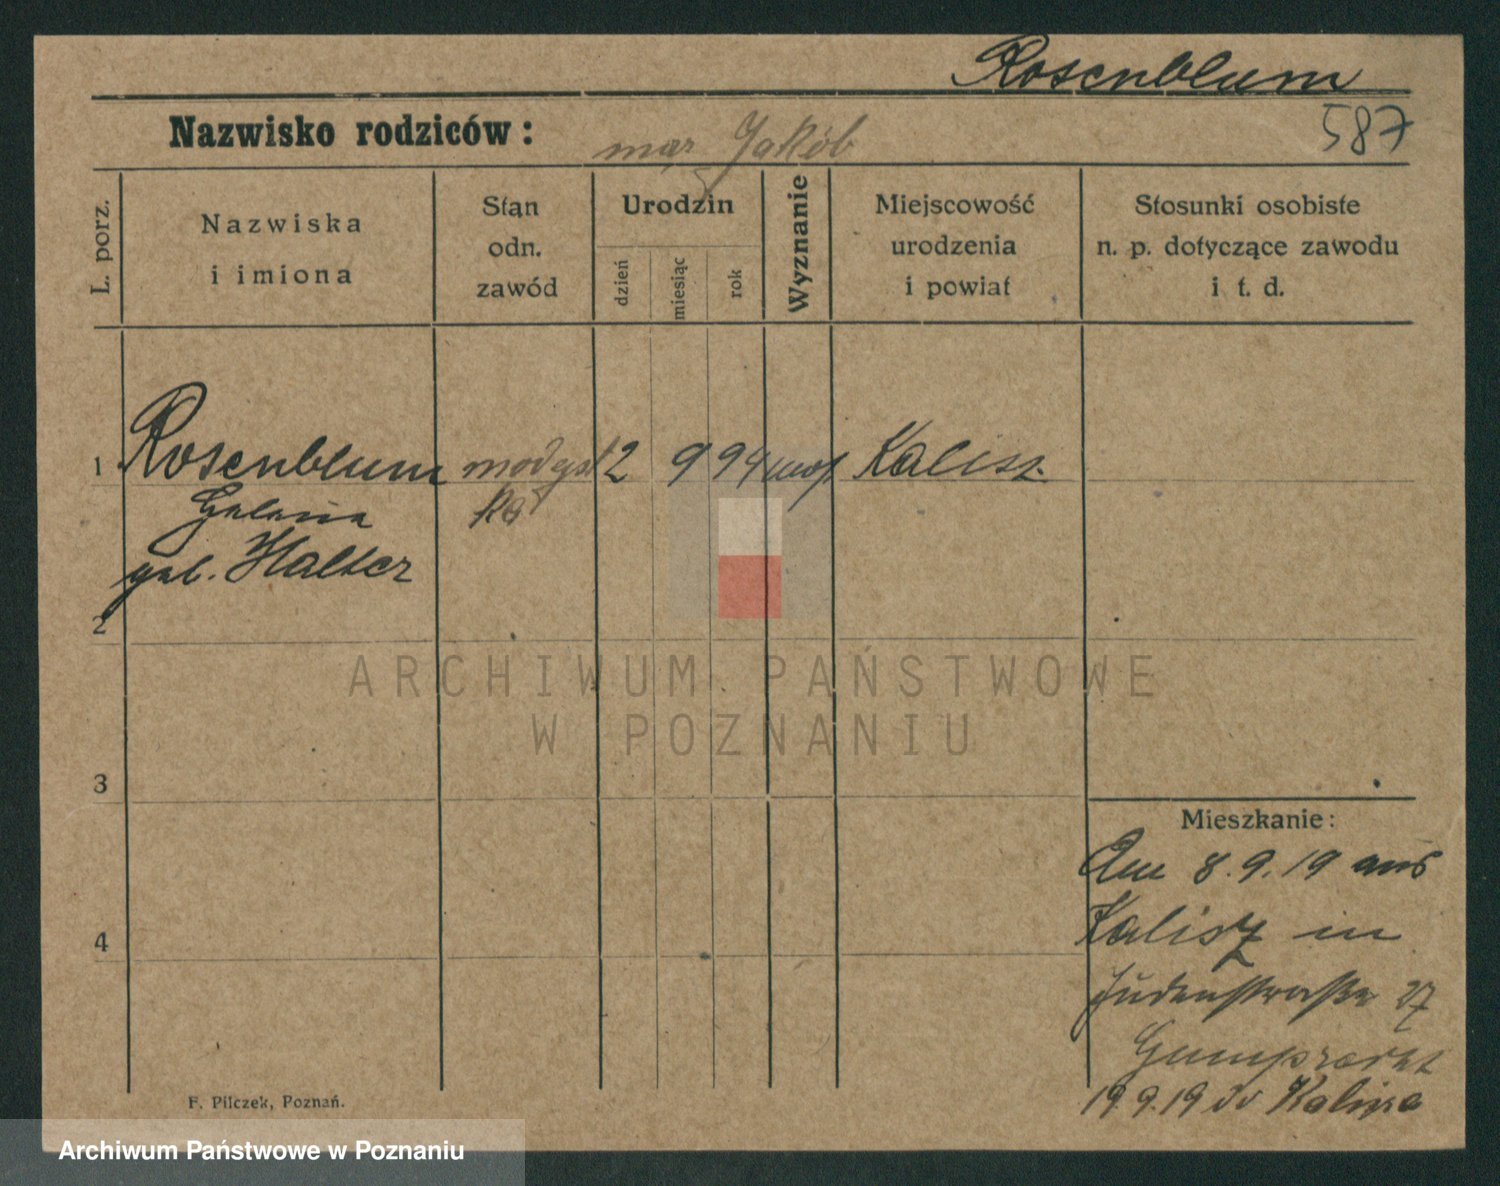 Rosenblum
Nazwisko rodziców: mąż Jakób 587
L. porz.
Nazwiska
i imiona
Stan
odn.
zawód
Urodzin
dzień
miesiąc
rok
Wyznanie
Miejscowość
urodzenia
i powiat
Stosunki osobiste
n. p. dotyczące zawodu
i t. d.
1 Rosenblum modyst 12 9 94 moj Kalisz
ka
geb. Halter
2
3
4
Mieszkanie:
Am 8.9.19 aus
Kalisz in
Judenstraße 27
19.9.19 do Kalisza
F. Pilczek, Poznań.
ARCHIWUM PAŃSTWOWE
W POZNANIU
Archiwum Państwowe w Poznaniu